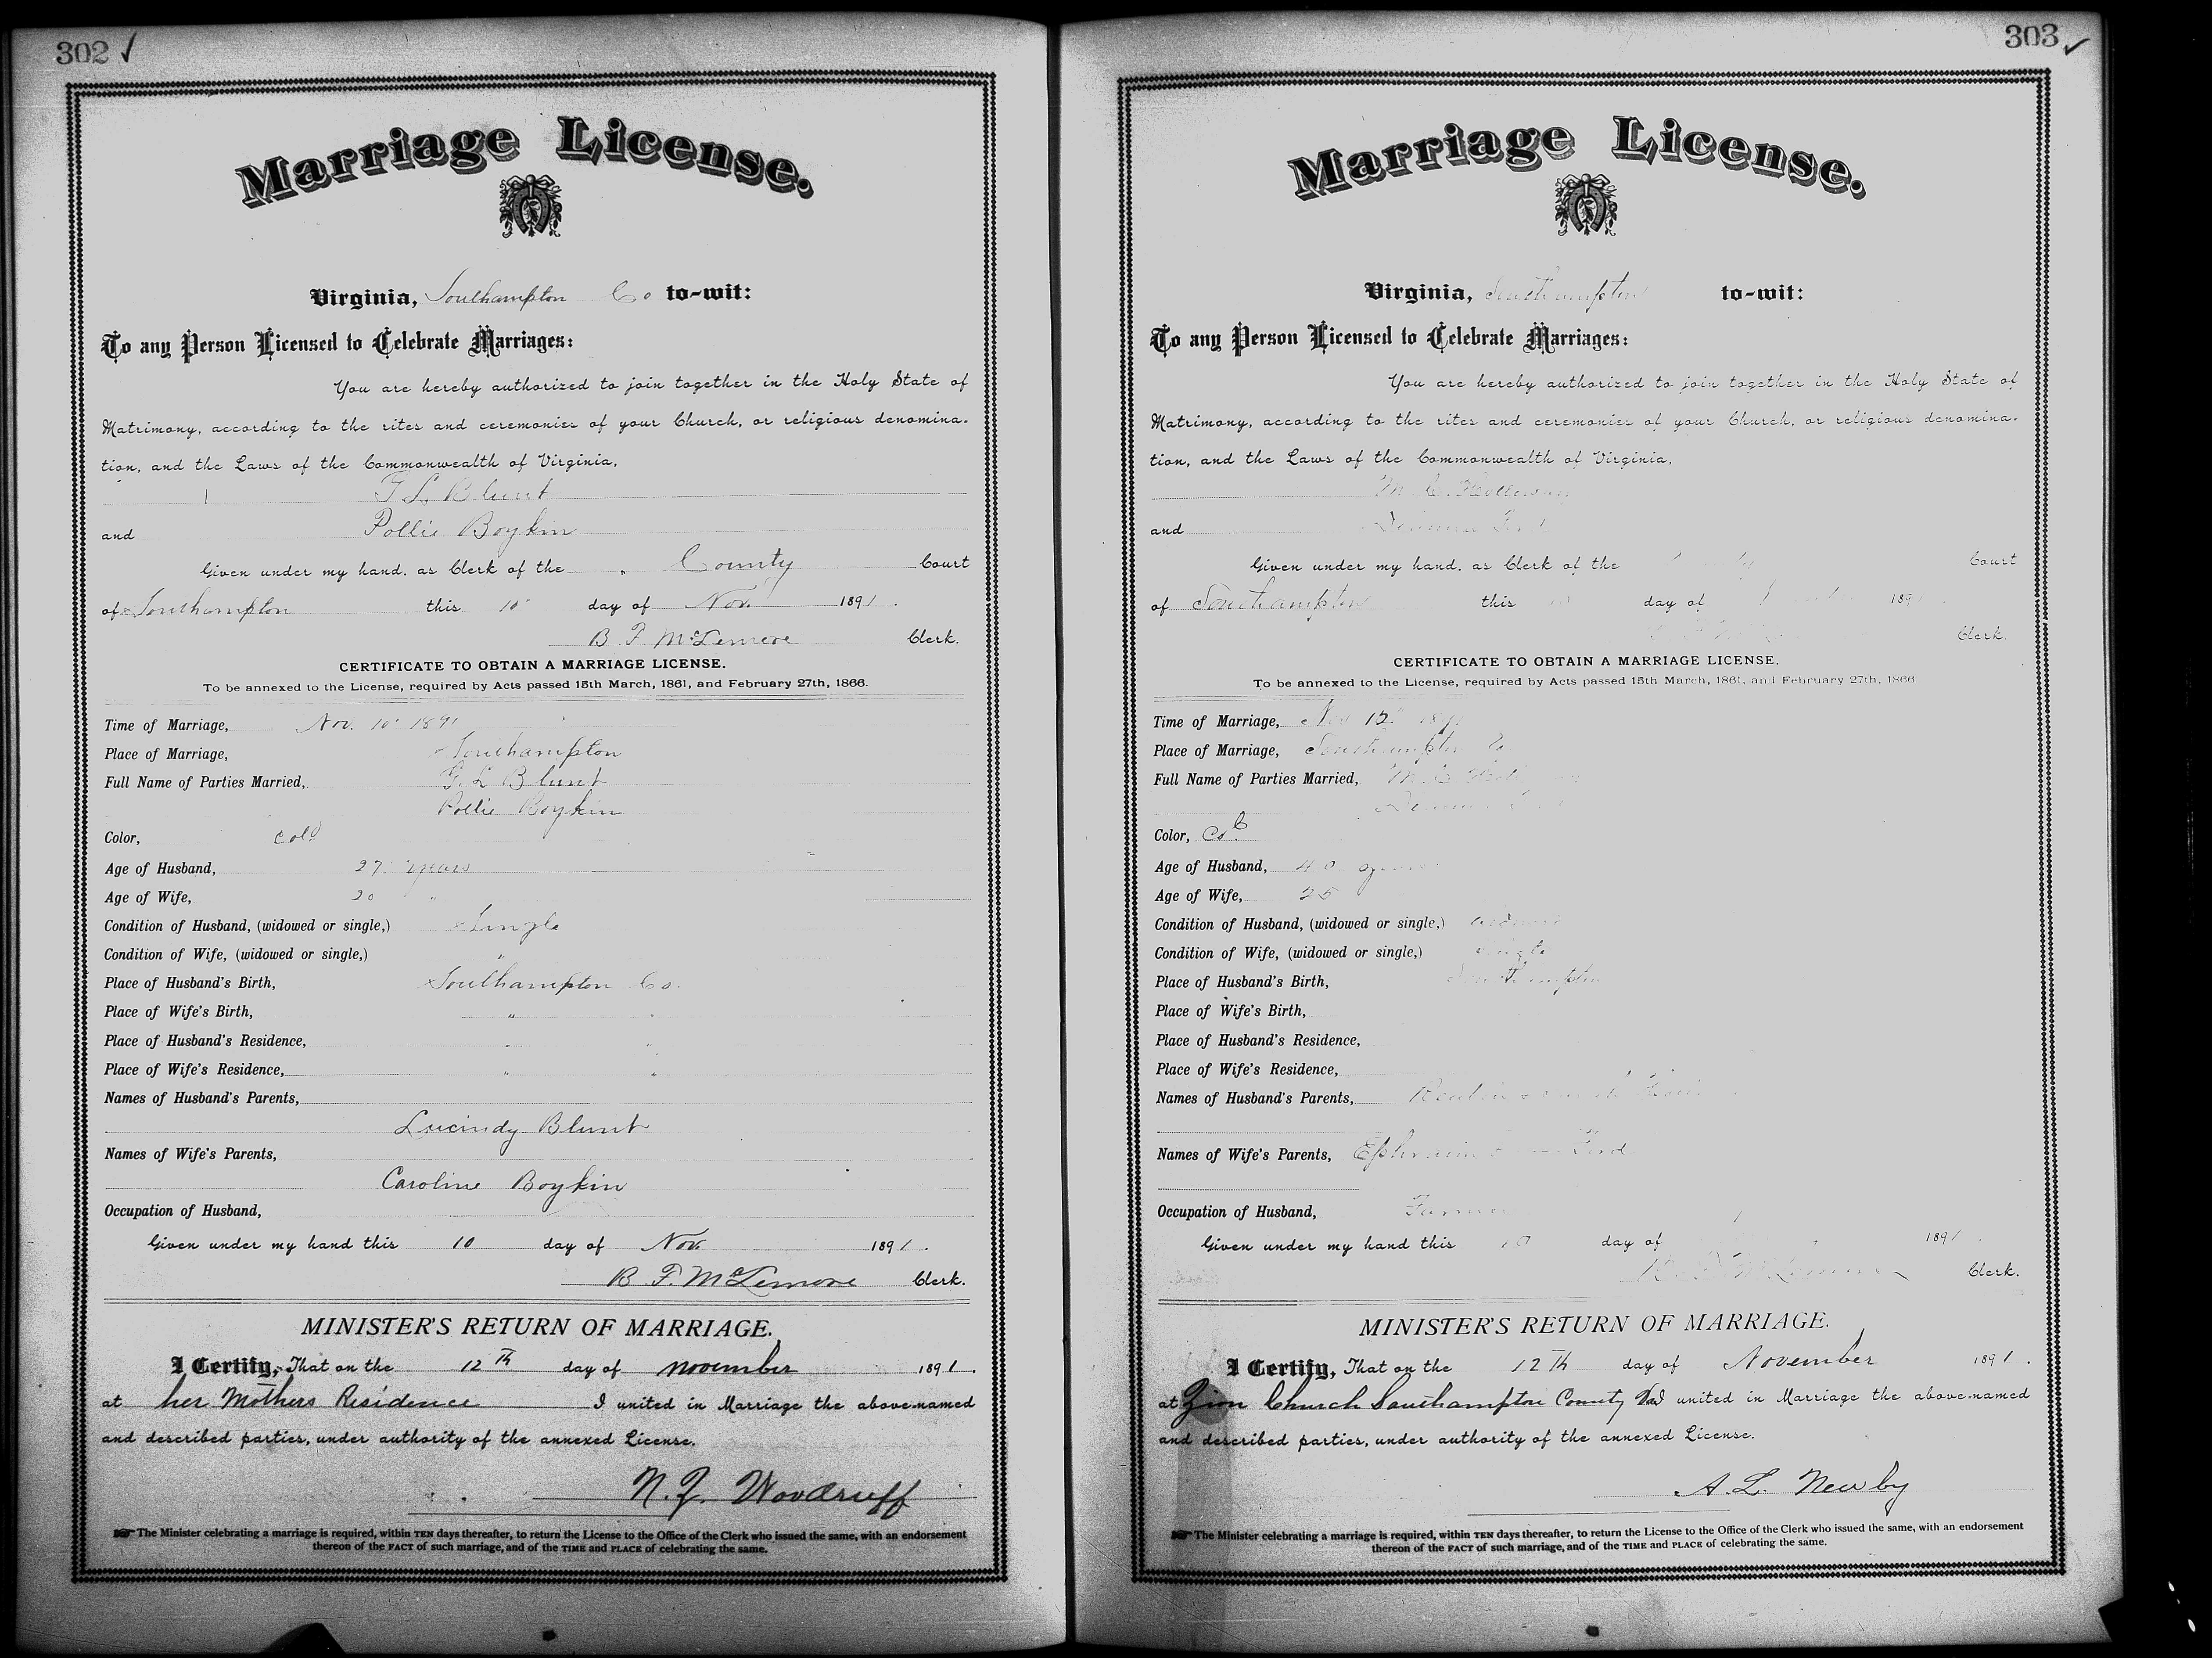 302 ✓
Marriage License.
Virginia, Southampton Co to-wit:
To any Person Licensed to Celebrate Marriages:
You are hereby authorized to join together in the Holy State of
Matrimony, according to the rites and ceremonies of your Church, or religious denomina-
tion, and the Laws of the Commonwealth of Virginia,
L Blunt
and Pollie Boykin
Given under my hand, as Clerk of the County Court
of Southampton this 10 day of Nov. 1891.
B F McLemore Clerk.
CERTIFICATE TO OBTAIN A MARRIAGE LICENSE.
To be annexed to the License, required by Acts passed 15th March, 1861, and February 27th, 1866.
Time of Marriage, Nov. 10 1891
Place of Marriage, Southampton
Full Name of Parties Married, L Blunt
Pollie Boykin
Color, cold
Age of Husband, 27 years
Age of Wife, 20 "
Condition of Husband, (widowed or single,) Single
Condition of Wife, (widowed or single,) "
Place of Husband's Birth, Southampton Co.
Place of Wife's Birth, " "
Place of Husband's Residence, " "
Place of Wife's Residence, " "
Names of Husband's Parents,
Lucindy Blunt
Names of Wife's Parents,
Caroline Boykin
Occupation of Husband,
Given under my hand this 10 day of Nov 1891.
B. F. McLemore Clerk.
MINISTER'S RETURN OF MARRIAGE.
I Certify, That on the 12th day of november 1891.
at her Mothers Residence I united in Marriage the above-named
and described parties, under authority of the annexed License.
Woodruff
☞ The Minister celebrating a marriage is required, within TEN days thereafter, to return the License to the Office of the Clerk who issued the same, with an endorsement
thereon of the FACT of such marriage, and of the TIME and PLACE of celebrating the same.
303 ✓
Marriage License.
Virginia, Southampton to-wit:
To any Person Licensed to Celebrate Marriages:
You are hereby authorized to join together in the Holy State of
Matrimony, according to the rites and ceremonies of your Church, or religious denomina-
tion, and the Laws of the Commonwealth of Virginia,
M. C.
and
Given under my hand, as Clerk of the Court
of Southampton this 10 day of 189
Clerk.
CERTIFICATE TO OBTAIN A MARRIAGE LICENSE.
To be annexed to the License, required by Acts passed 15th March, 1861, and February 27th, 1866
Time of Marriage, Nov 12 1891
Place of Marriage, Southampton Co
Full Name of Parties Married, M. C.
Color, Col
Age of Husband, 40 years
Age of Wife, 25
Condition of Husband, (widowed or single,) widowed
Condition of Wife, (widowed or single,) single
Place of Husband's Birth, Southampton
Place of Wife's Birth,
Place of Husband's Residence,
Place of Wife's Residence,
Names of Husband's Parents,
Names of Wife's Parents, Ephraim
Occupation of Husband, Farmer
Given under my hand this 10 day of 1891.
McLemore Clerk.
MINISTER'S RETURN OF MARRIAGE.
I Certify, That on the 12th day of November 1891.
at Zion Church Southampton County Va I united in Marriage the above-named
and described parties, under authority of the annexed License.
A. L. Newby
☞ The Minister celebrating a marriage is required, within TEN days thereafter, to return the License to the Office of the Clerk who issued the same, with an endorsement
thereon of the FACT of such marriage, and of the TIME and PLACE of celebrating the same.